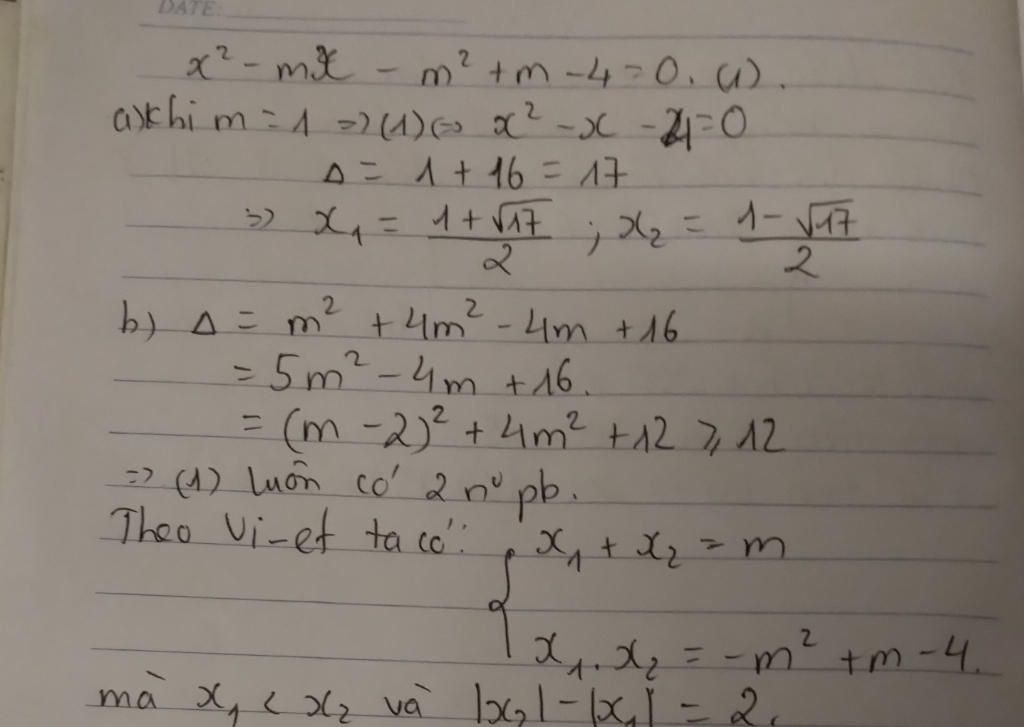 DATE:
x² - mx - m² + m - 4 = 0. (1).
a) Khi m = 1 => (1) <=> x² - x - 4 = 0
Δ = 1 + 16 = 17
=> x₁ = (1 + √17)/2 ; x₂ = (1 - √17)/2
b) Δ = m² + 4m² - 4m + 16
= 5m² - 4m + 16.
= (m - 2)² + 4m² + 12 ⩾ 12
=> (1) luôn có 2 n⁰ pb.
Theo Vi-et ta có: { x₁ + x₂ = m
x₁. x₂ = -m² + m - 4.
mà x₁ < x₂ và |x₂| - |x₁| = 2.